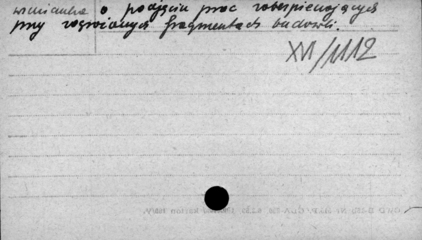 wzmianka o podjęciu prac zabezpieczających
przy rozwianych fragmentach budowli.
XVI/1112